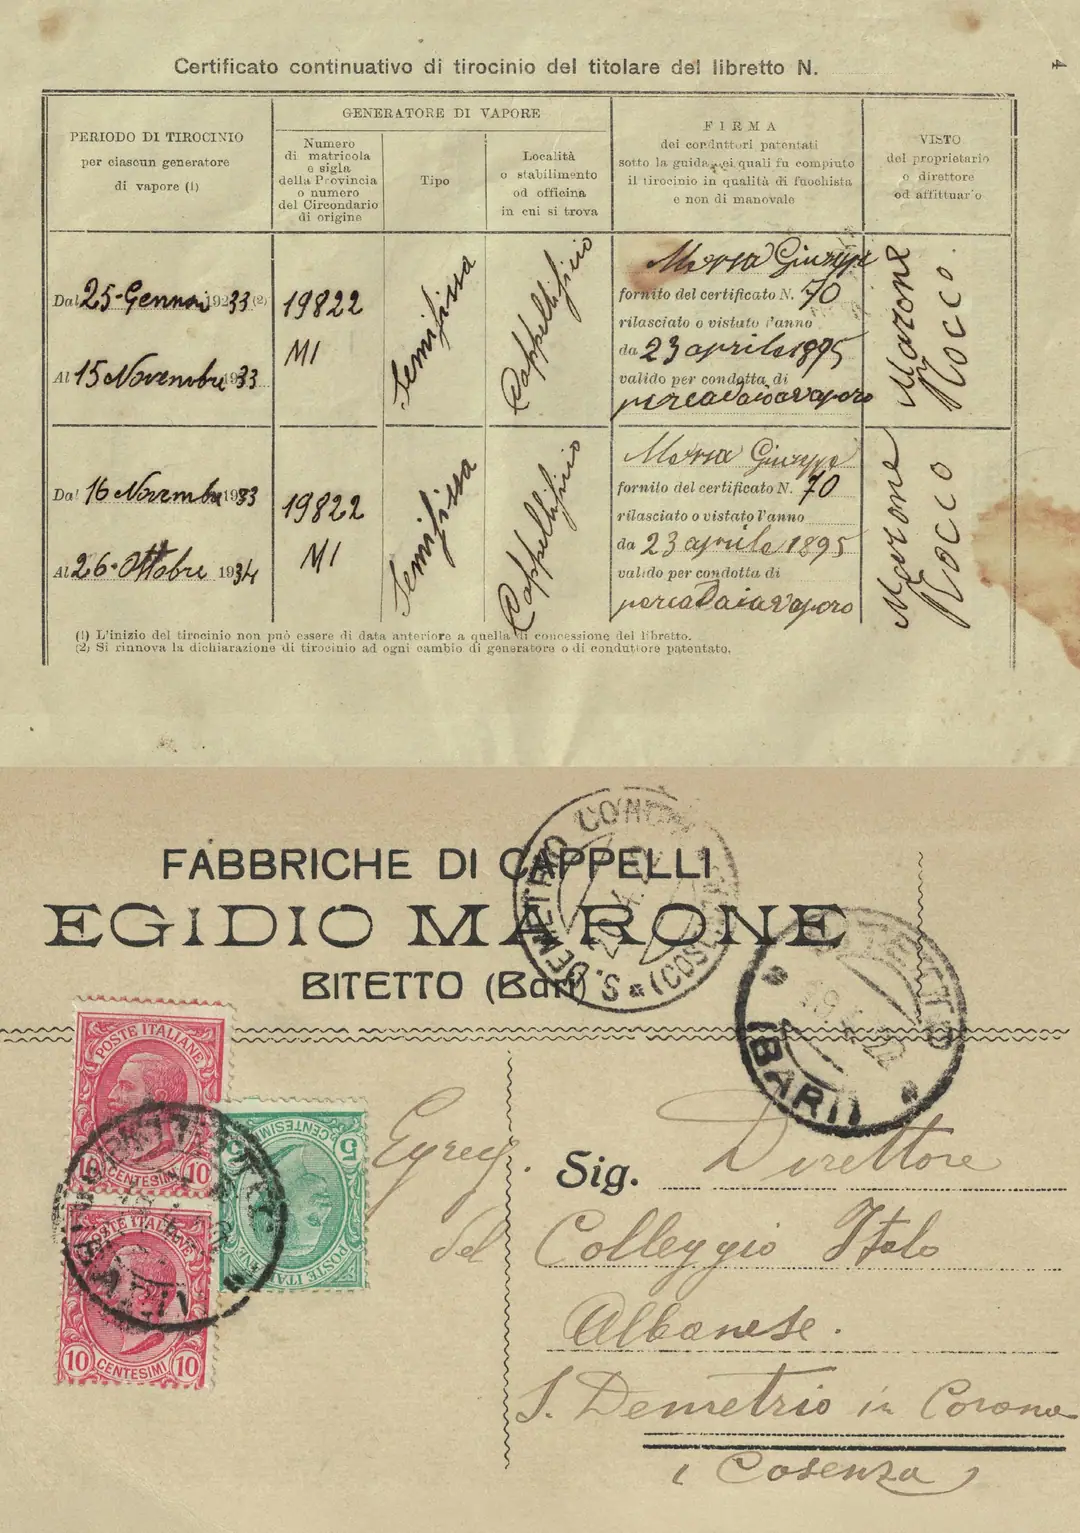 Certificato continuativo di tirocinio del titolare del libretto N.
4
PERIODO DI TIROCINIO
per ciascun generatore
di vapore (1)
GENERATORE DI VAPORE
Numero
di matricola
e sigla
della Provincia
o numero
del Circondario
di origine
Tipo
Località
o stabilimento
od officina
in cui si trova
FIRMA
dei conduttori patentati
sotto la guida dei quali fu compiuto
il tirocinio in qualità di fuochista
e non di manovale
VISTO
del proprietario
o direttore
od affittuario
Dal 25 - Gennai 1933 (2)
Al 15 Novembre 1933
19822
MI
Semifissa
Cappellificio
Giuseppe
fornito del certificato N. 70
rilasciato o vistato l'anno
da 23 aprile 1895
valido per condotta di
a vaporo
Marone
Rocco
Dal 16 Novembre 1933
Al 26 - Ottobre 1934
19822
MI
Semifissa
Cappellificio
Giuseppe
fornito del certificato N. 70
rilasciato o vistato l'anno
da 23 aprile 1895
valido per condotta di
a vaporo
Marone
Rocco
(1) L'inizio del tirocinio non può essere di data anteriore a quella di concessione del libretto.
(2) Si rinnova la dichiarazione di tirocinio ad ogni cambio di generatore o di conduttore patentato.
FABBRICHE DI CAPPELLI
EGIDIO MARONE
BITETTO (Bari)
S. DEMETRIO CORONE
(COSENZA)
BITETTO
(BARI)
POSTE ITALIANE
10 CENTESIMI 10
5 CENTESIMI 5
POSTE ITALIANE
POSTE ITALIANE
10 CENTESIMI 10
BITETTO
BARI
Egreg. Sig. Direttore
del Colleggio Italo
Albanese.
S. Demetrio in Corona
(Cosenza)